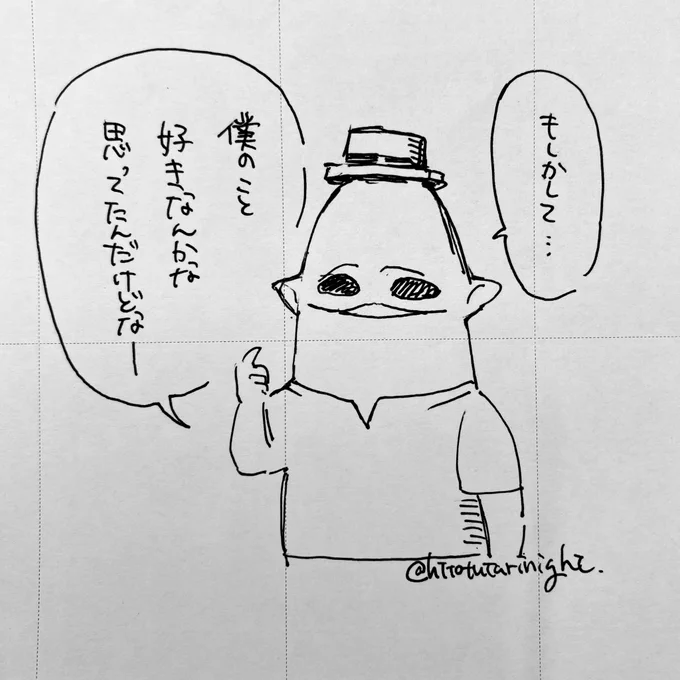 もしかして…
僕のこと
好きなんかな
思ってたんだけどなー